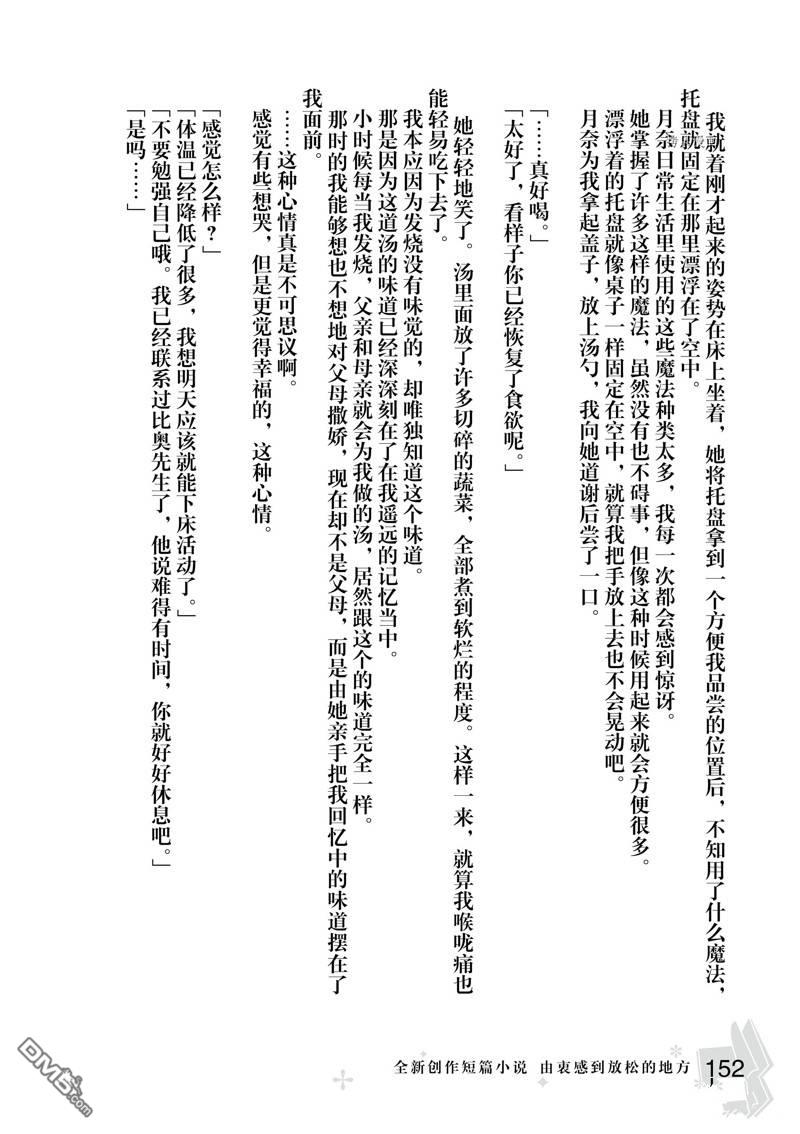 我就着刚才起来的姿势在床上坐着，她将托盘拿到一个方便我品尝的位置后，不知用了什么魔法，
托盘就固定在那里漂浮在了空中。
月奈日常生活里使用的这些魔法种类太多，我每一次都会感到惊讶。
她掌握了许多这样的魔法，虽然没有也不碍事，但像这种时候用起来就会方便很多。
漂浮着的托盘就像桌子一样固定在空中，就算我把手放上去也不会晃动吧。
月奈为我拿起盖子，放上汤勺，我向她道谢后尝了一口。
「……真好喝。」
「太好了，看样子你已经恢复了食欲呢。」
她轻轻地笑了。汤里面放了许多切碎的蔬菜，全部煮到软烂的程度。这样一来，就算我喉咙痛也
能轻易吃下去了。
我本应因为发烧没有味觉的，却唯独知道这个味道。
那是因为这道汤的味道已经深深刻在了在我遥远的记忆当中。
小时候每当我发烧，父亲和母亲就会为我做的汤，居然跟这个的味道完全一样。
那时的我能够想也不想地对父母撒娇，现在却不是父母，而是由她亲手把我回忆中的味道摆在了
我面前。
……这种心情真是不可思议啊。
感觉有些想哭，但是更觉得幸福的，这种心情。
「感觉怎么样？」
「体温已经降低了很多，我想明天应该就能下床活动了。」
「不要勉强自己哦。我已经联系过比奥先生了，他说难得有时间，你就好好休息吧。」
「是吗……」
全新创作短篇小说 由衷感到放松的地方 152